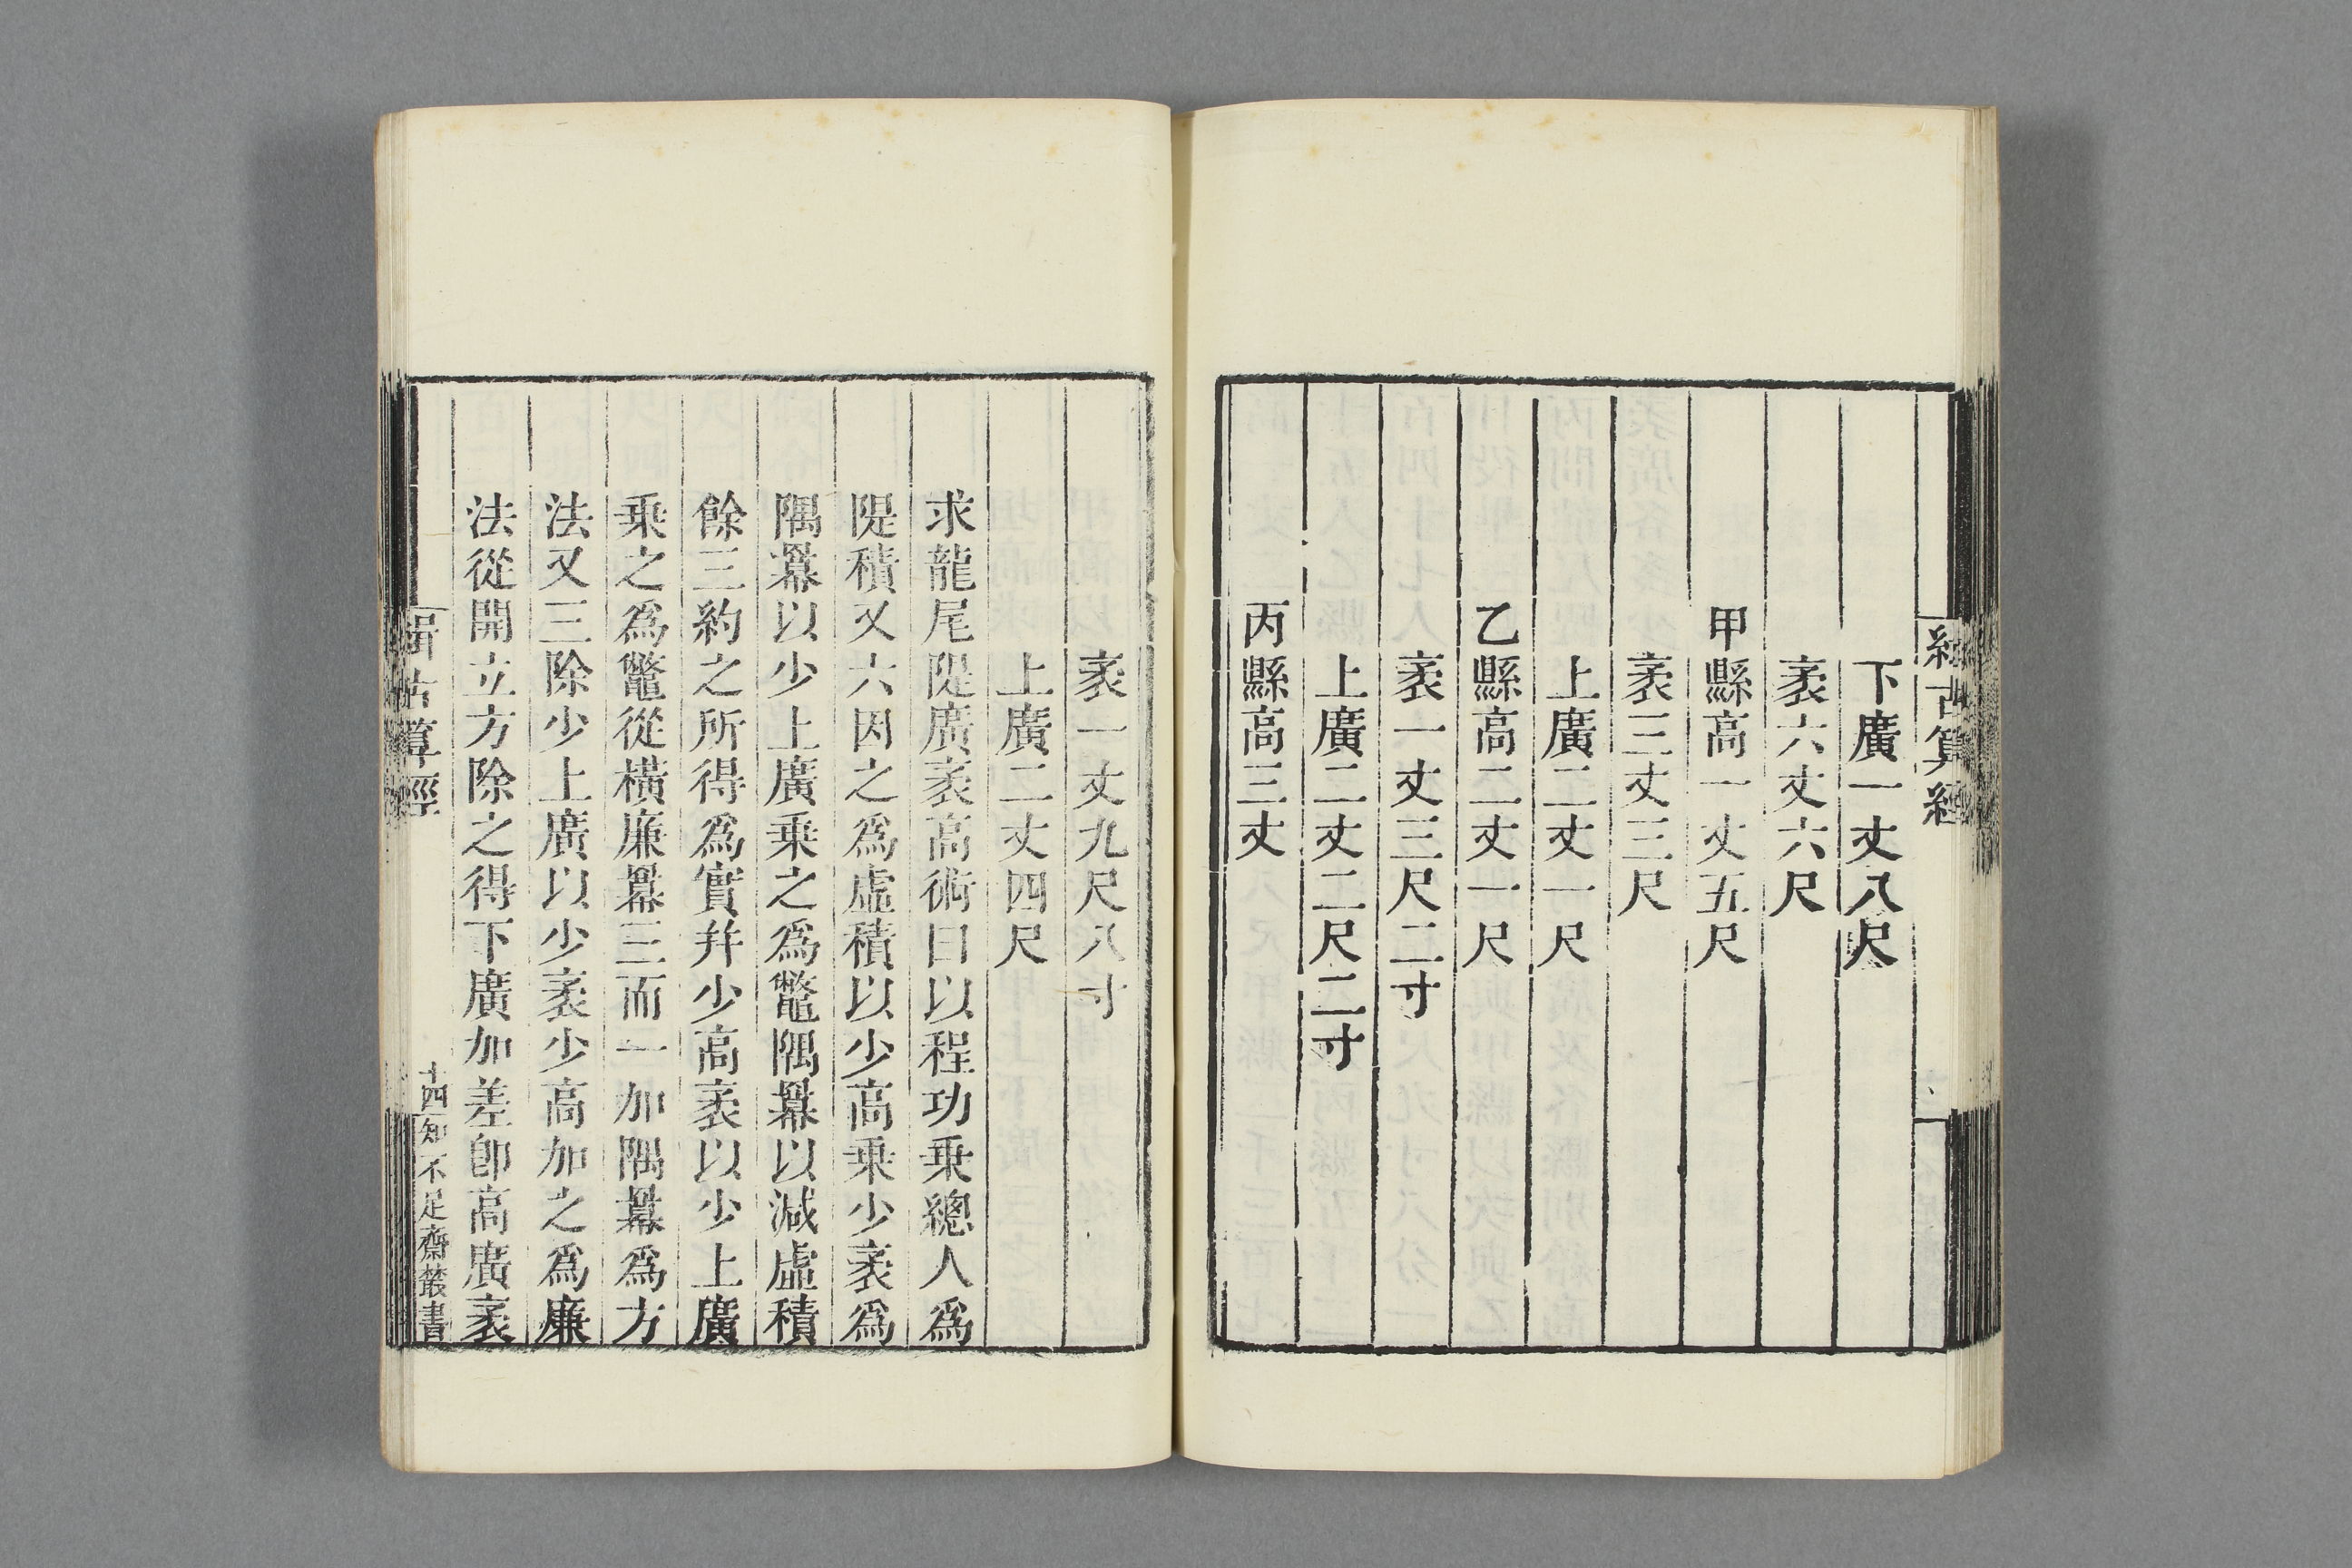 緝古算經
下廣一丈八尺
袤六丈六尺
甲縣高一丈五尺
袤三丈三尺
上廣二丈一尺
乙縣高二丈一尺
袤一丈三尺二寸
上廣二丈二尺二寸
丙縣高三丈
袤一丈九尺八寸
上廣二丈四尺
求龍尾隄廣袤高術曰以程功乗總人爲
隄積又六因之爲虛積以少高乗少袤爲
隅羃以少上廣乗之爲鼈隅羃以減虛積
餘三約之所得爲實并少高袤以少上廣
乗之爲鼈從橫廉羃三而一加隅羃爲方
法又三除少上廣以少袤少高加之爲廉
法從開立方除之得下廣加差卽高廣袤
緝古算經
十四
知不足齋叢書